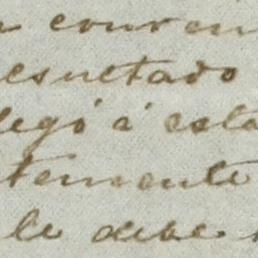 conven
resultado
legó á esta
temente
le debe